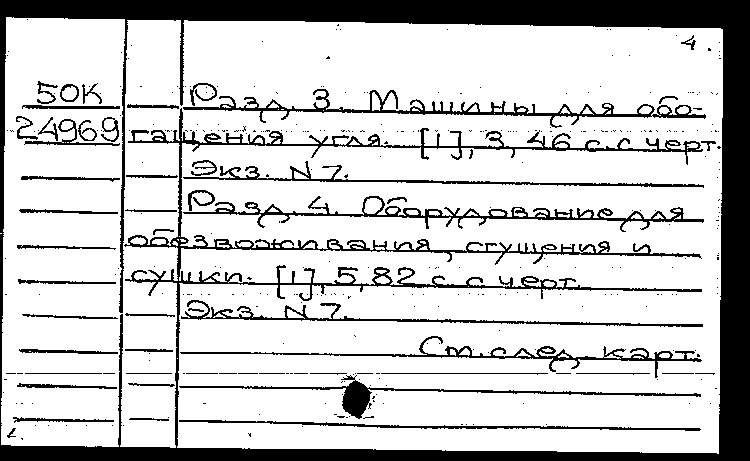 4.
50К Разд. 3. Машины для обо-
24969 гащения угля. [1], 3, 46 с. с черт.
Экз. N 7.
Разд. 4. Оборудование для
обезвоживания, сгущения и
сушки. [1], 5, 82 с. с черт.
Экз. N 7.
См. след. карт.